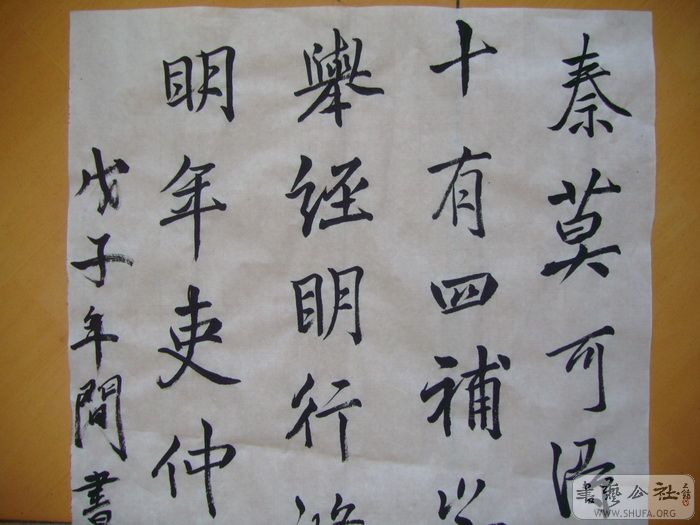 秦莫可得
十有四補
舉經明行
明年吏仲
戊子年間書
書藝公社
WWW.SHUFA.ORG